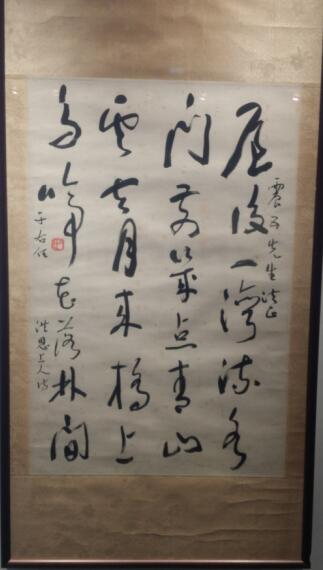 震五先生法正
屋後一灣流水
門前幾點青山
雲去月來橋上
鳥啼花落林間
洪恩上人詩
于右任